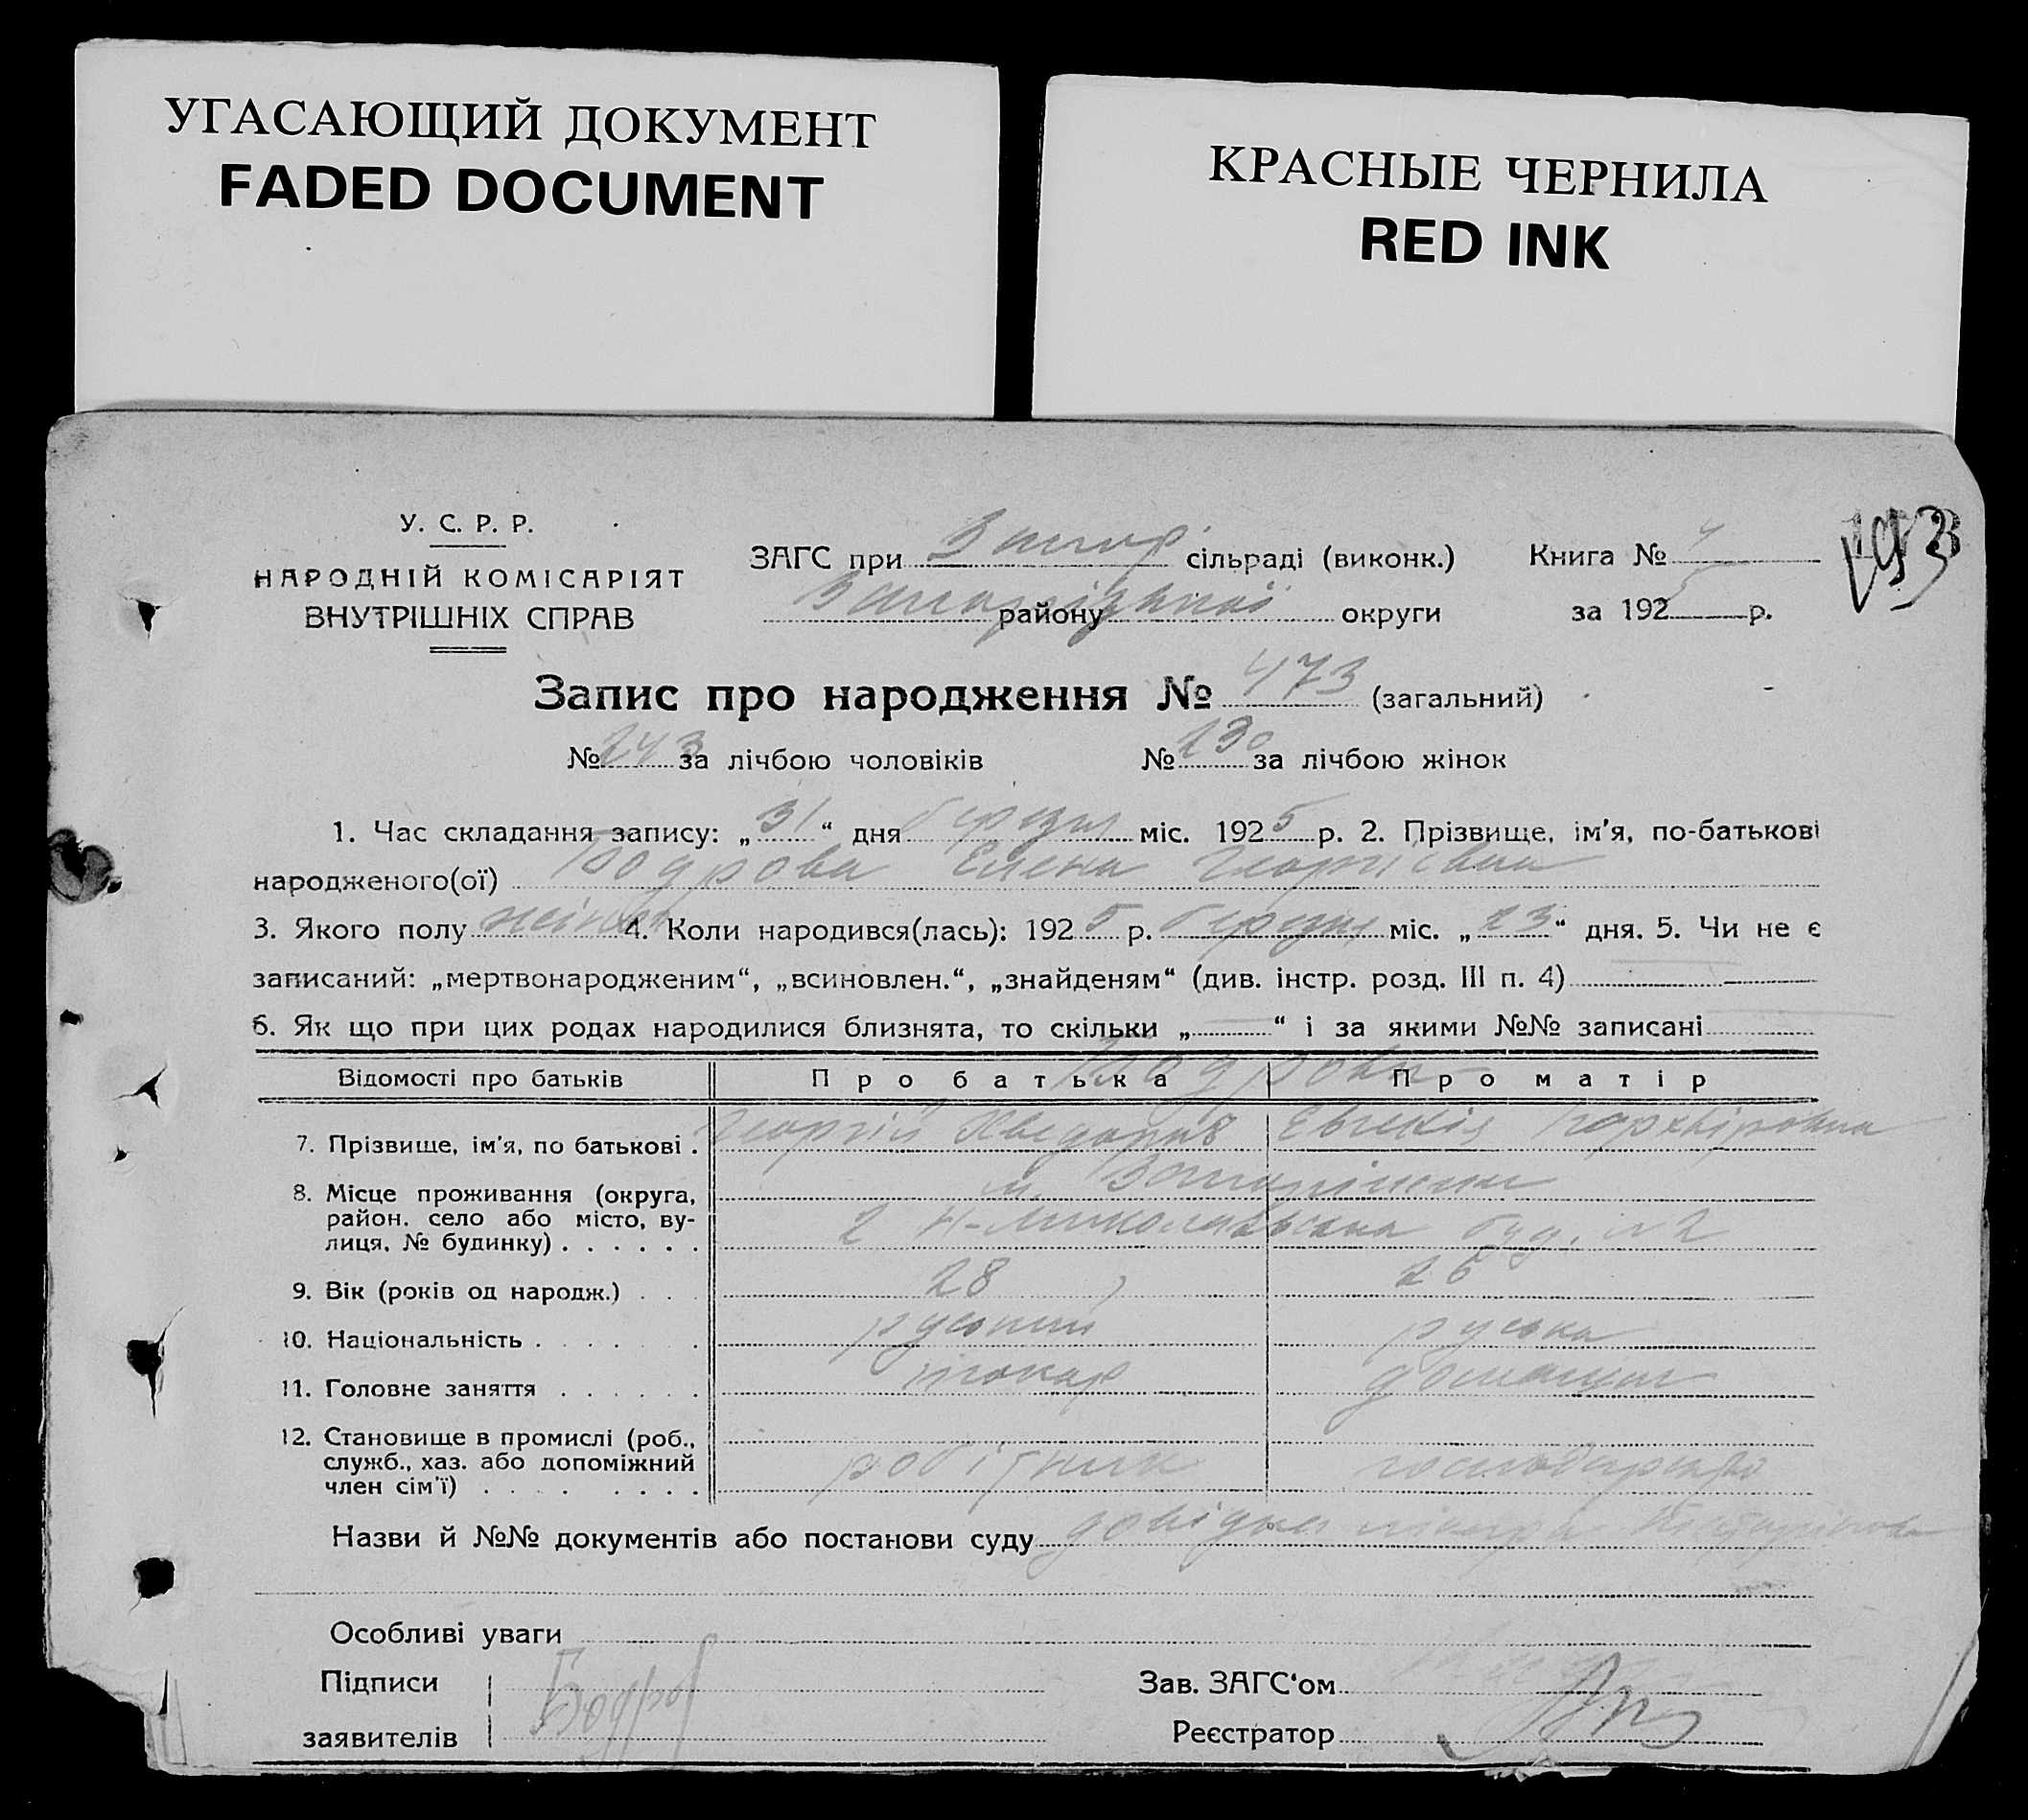 УГАСАЮЩИЙ ДОКУМЕНТ
FADED DOCUMENT
КРАСНЫЕ ЧЕРНИЛА
RED INK
У. С. Р. Р.
НАРОДНІЙ КОМІСАРІЯТ
ВНУТРІШНІХ СПРАВ
ЗАГС при Запор. сільраді (виконк.) Книга № 4
Запорізької району округи за 1925 р.
193
Запис про народження № 473 (загальний)
№ 243 за лічбою чоловіків № 230 за лічбою жінок
1. Час складання запису: „31“ дня березня міс. 1925 р. 2. Прізвище, ім'я, по-батькові
народженого(ої) Бодрова Елена Георгієвна
3. Якого полу жіноч 4. Коли народився(лась): 1925 р. березня міс. „23“ дня. 5. Чи не є
записаний: „мертвонародженим“, „всиновлен.“, „знайденям“ (див. інстр. розд. III п. 4)
6. Як що при цих родах народилися близнята, то скільки „ “ і за якими №№ записані
Бодрови
Відомості про батьків Про батька Про матір
7. Прізвище, ім'я, по батькові . Георгій Хведорів Евгенія Порхвіровна
8. Місце проживання (округа, м. Запоріжжя
район, село або місто, ву-
лиця, № будинку) . . . . . . 2 Н-Миколаївська буд. № 2
9. Вік (років од народж.) . . . 28 26
10. Національність . . . . . . . руський руська
11. Головне заняття . . . . . . токар домашня
12. Становище в промислі (роб.,
служб., хаз. або допоміжний робітник господарка
член сім'ї) . . . . . . . .
Назви й №№ документів або постанови суду довідка
Особливі уваги
Підписи Бодров Зав. ЗАГС'ом
заявителів Реєстратор